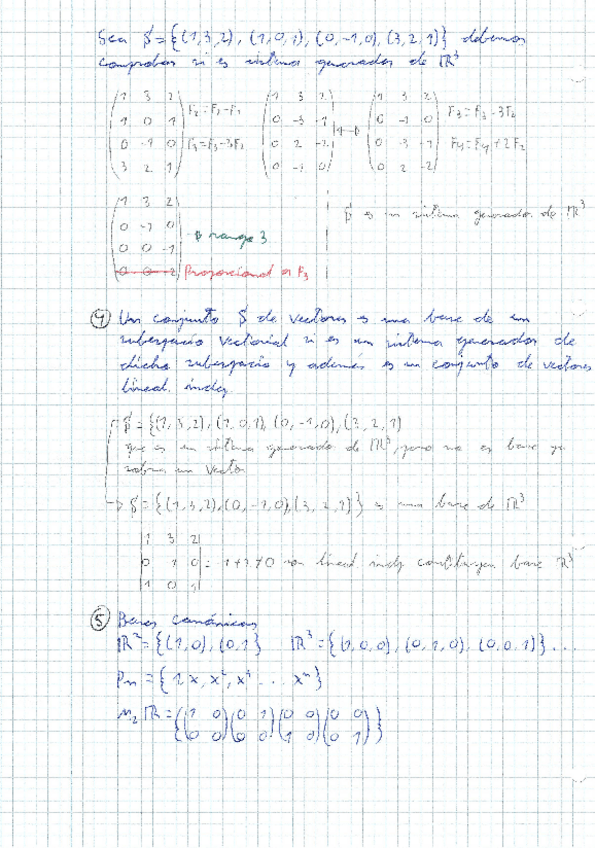 Sea S={(1,3,2), (1,0,1), (0,-1,0), (3,2,1)} debemos
comprobar si es sistema generador de ℝ³
1 3 2
1 0 1
0 -1 0
3 2 1
F₂=F₂-F₁
1 3 2
0 -3 -1
0 2 -2
0 -1 0
1 3 2
0 -1 0
0 -3 -1
0 2 -2
F₃=F₃-3F₂
F₄=F₄+2F₂
1 3 2
0 -1 0
0 0 -1
0 0 -2
rango 3
Proporcional a F₃
S es un sistema generador de ℝ³
④ Un conjunto S de vectores es una base de un
subespacio vectorial si es un sistema generador de
dicho subespacio y además es un conjunto de vectores
lineal. indep.
S={(1,3,2), (1,0,1), (0,-1,0), (3,2,1)
que es un sistema generador de ℝ³, pero no es base ya
sobra un vector
S={(1,3,2), (0,-1,0), (3,2,1)} es una base de ℝ³
1 3 2
0 1 0
1 0 1
son lineal. indep. constituyen base ℝ³
⑤ Bases canónicas
ℝ²={(1,0), (0,1} ℝ³={(1,0,0), (0,1,0), (0,0,1)}...
Pn={1,x,x²,x³...xⁿ}
M₂ℝ={(1 0 (0 1 (0 0 (0 0
0 0) 0 0) 1 0) 0 1)}